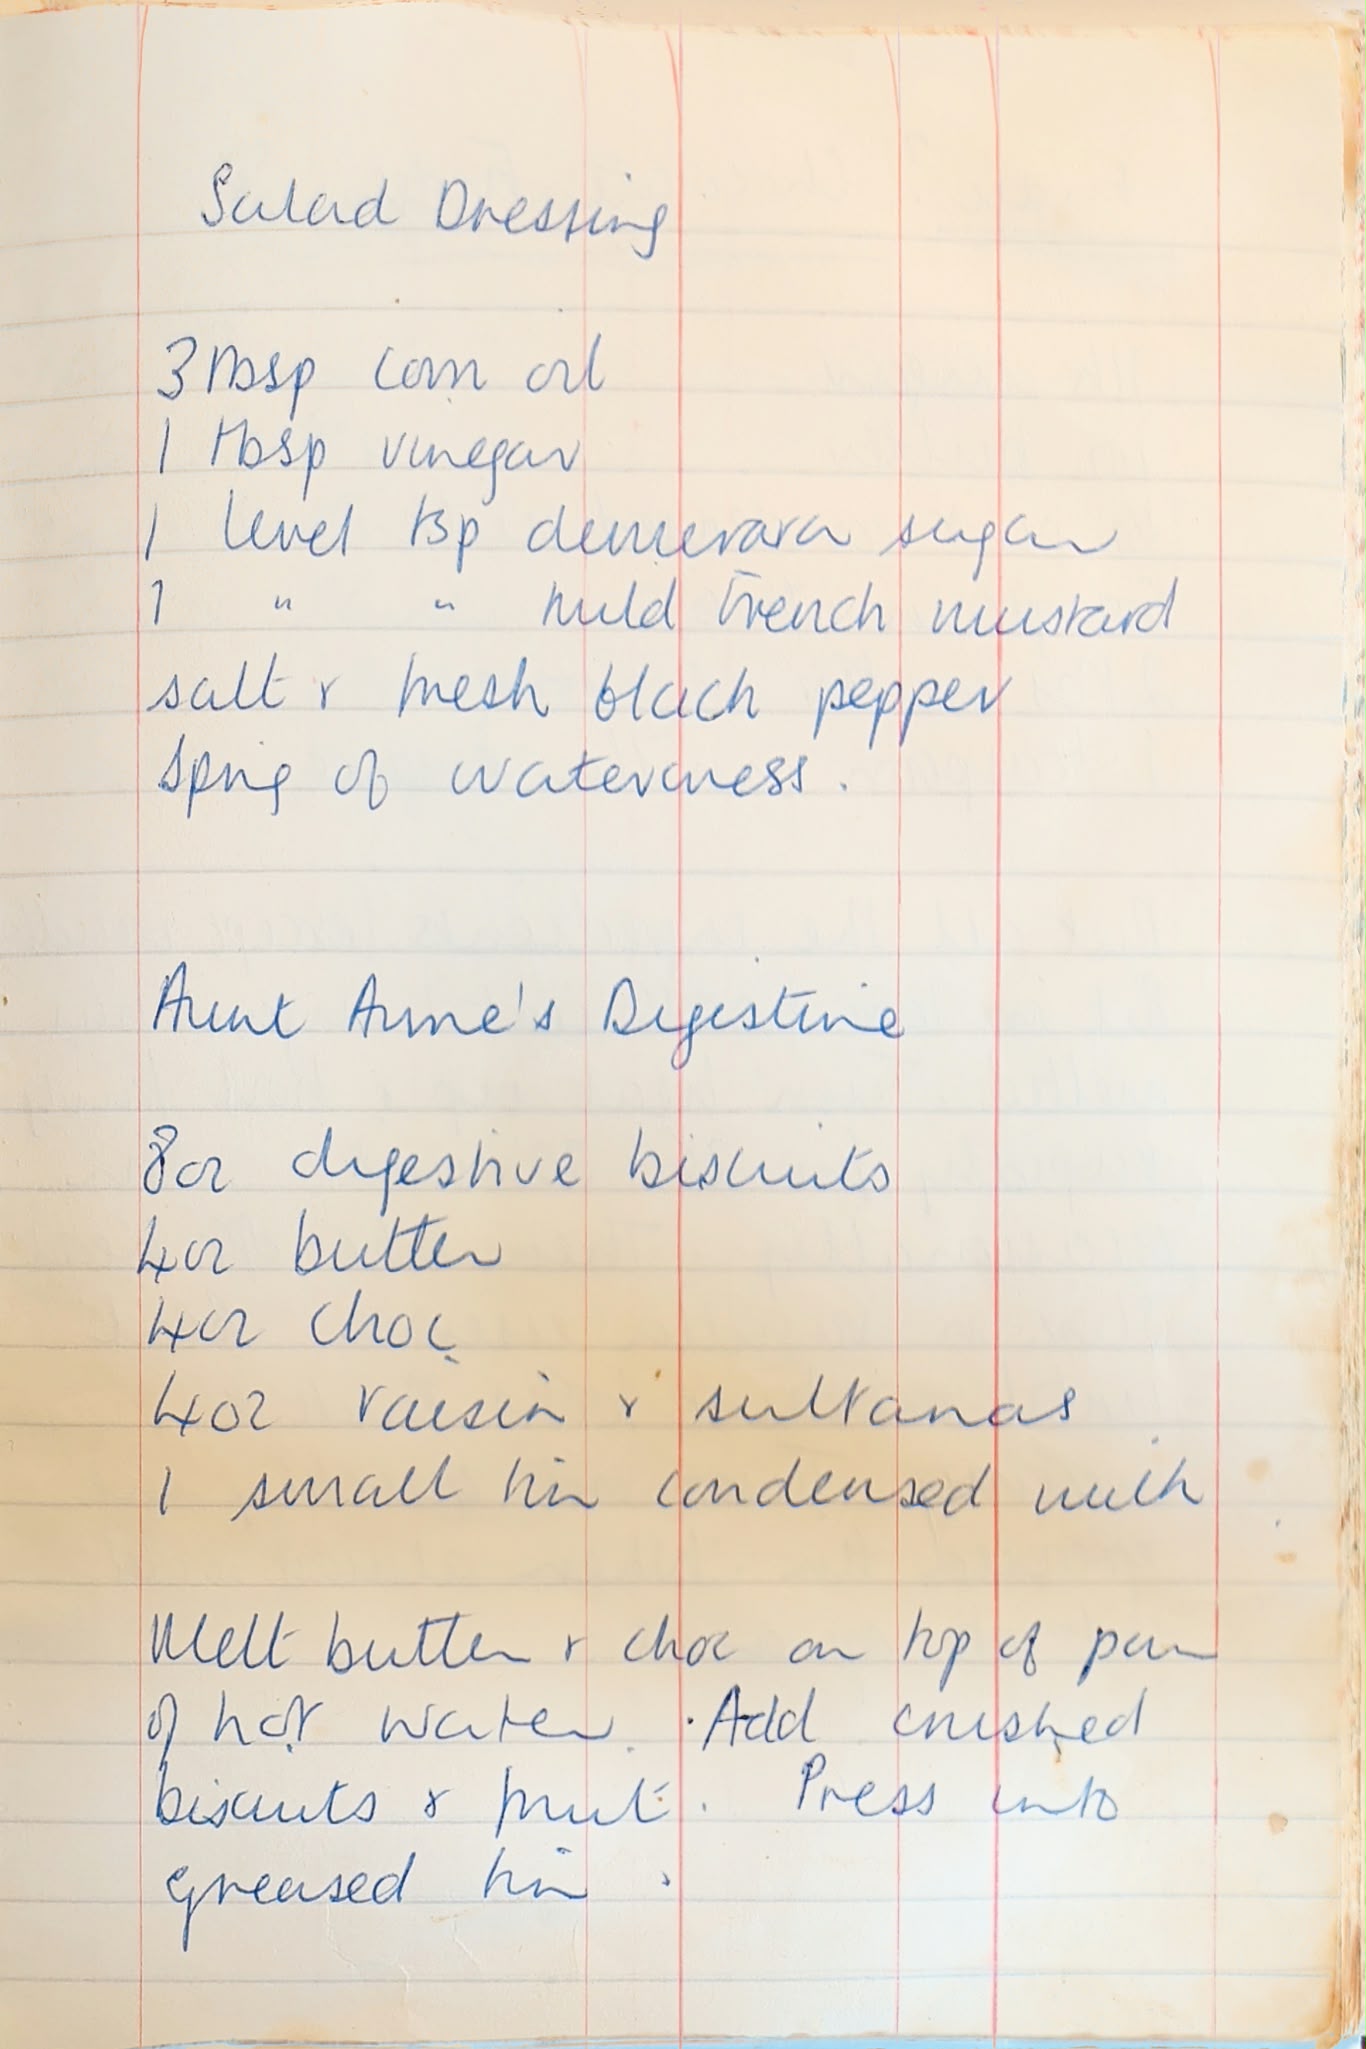 Salad Dressing
3 tbsp corn oil
1 tbsp vinegar
1 level tsp demerara sugar
1 " " mild French mustard
salt & fresh black pepper
sprig of watercress.
Aunt Anne's Digestive
8oz digestive biscuits
4oz butter
4oz choc
4oz raisin & sultanas
1 small tin condensed milk
Melt butter & choc on top of pan
of hot water. Add crushed
biscuits & fruit. Press into
greased tin.